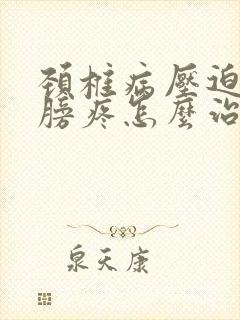 頚椎病壓迫
膀疼怎麼治
泉天康